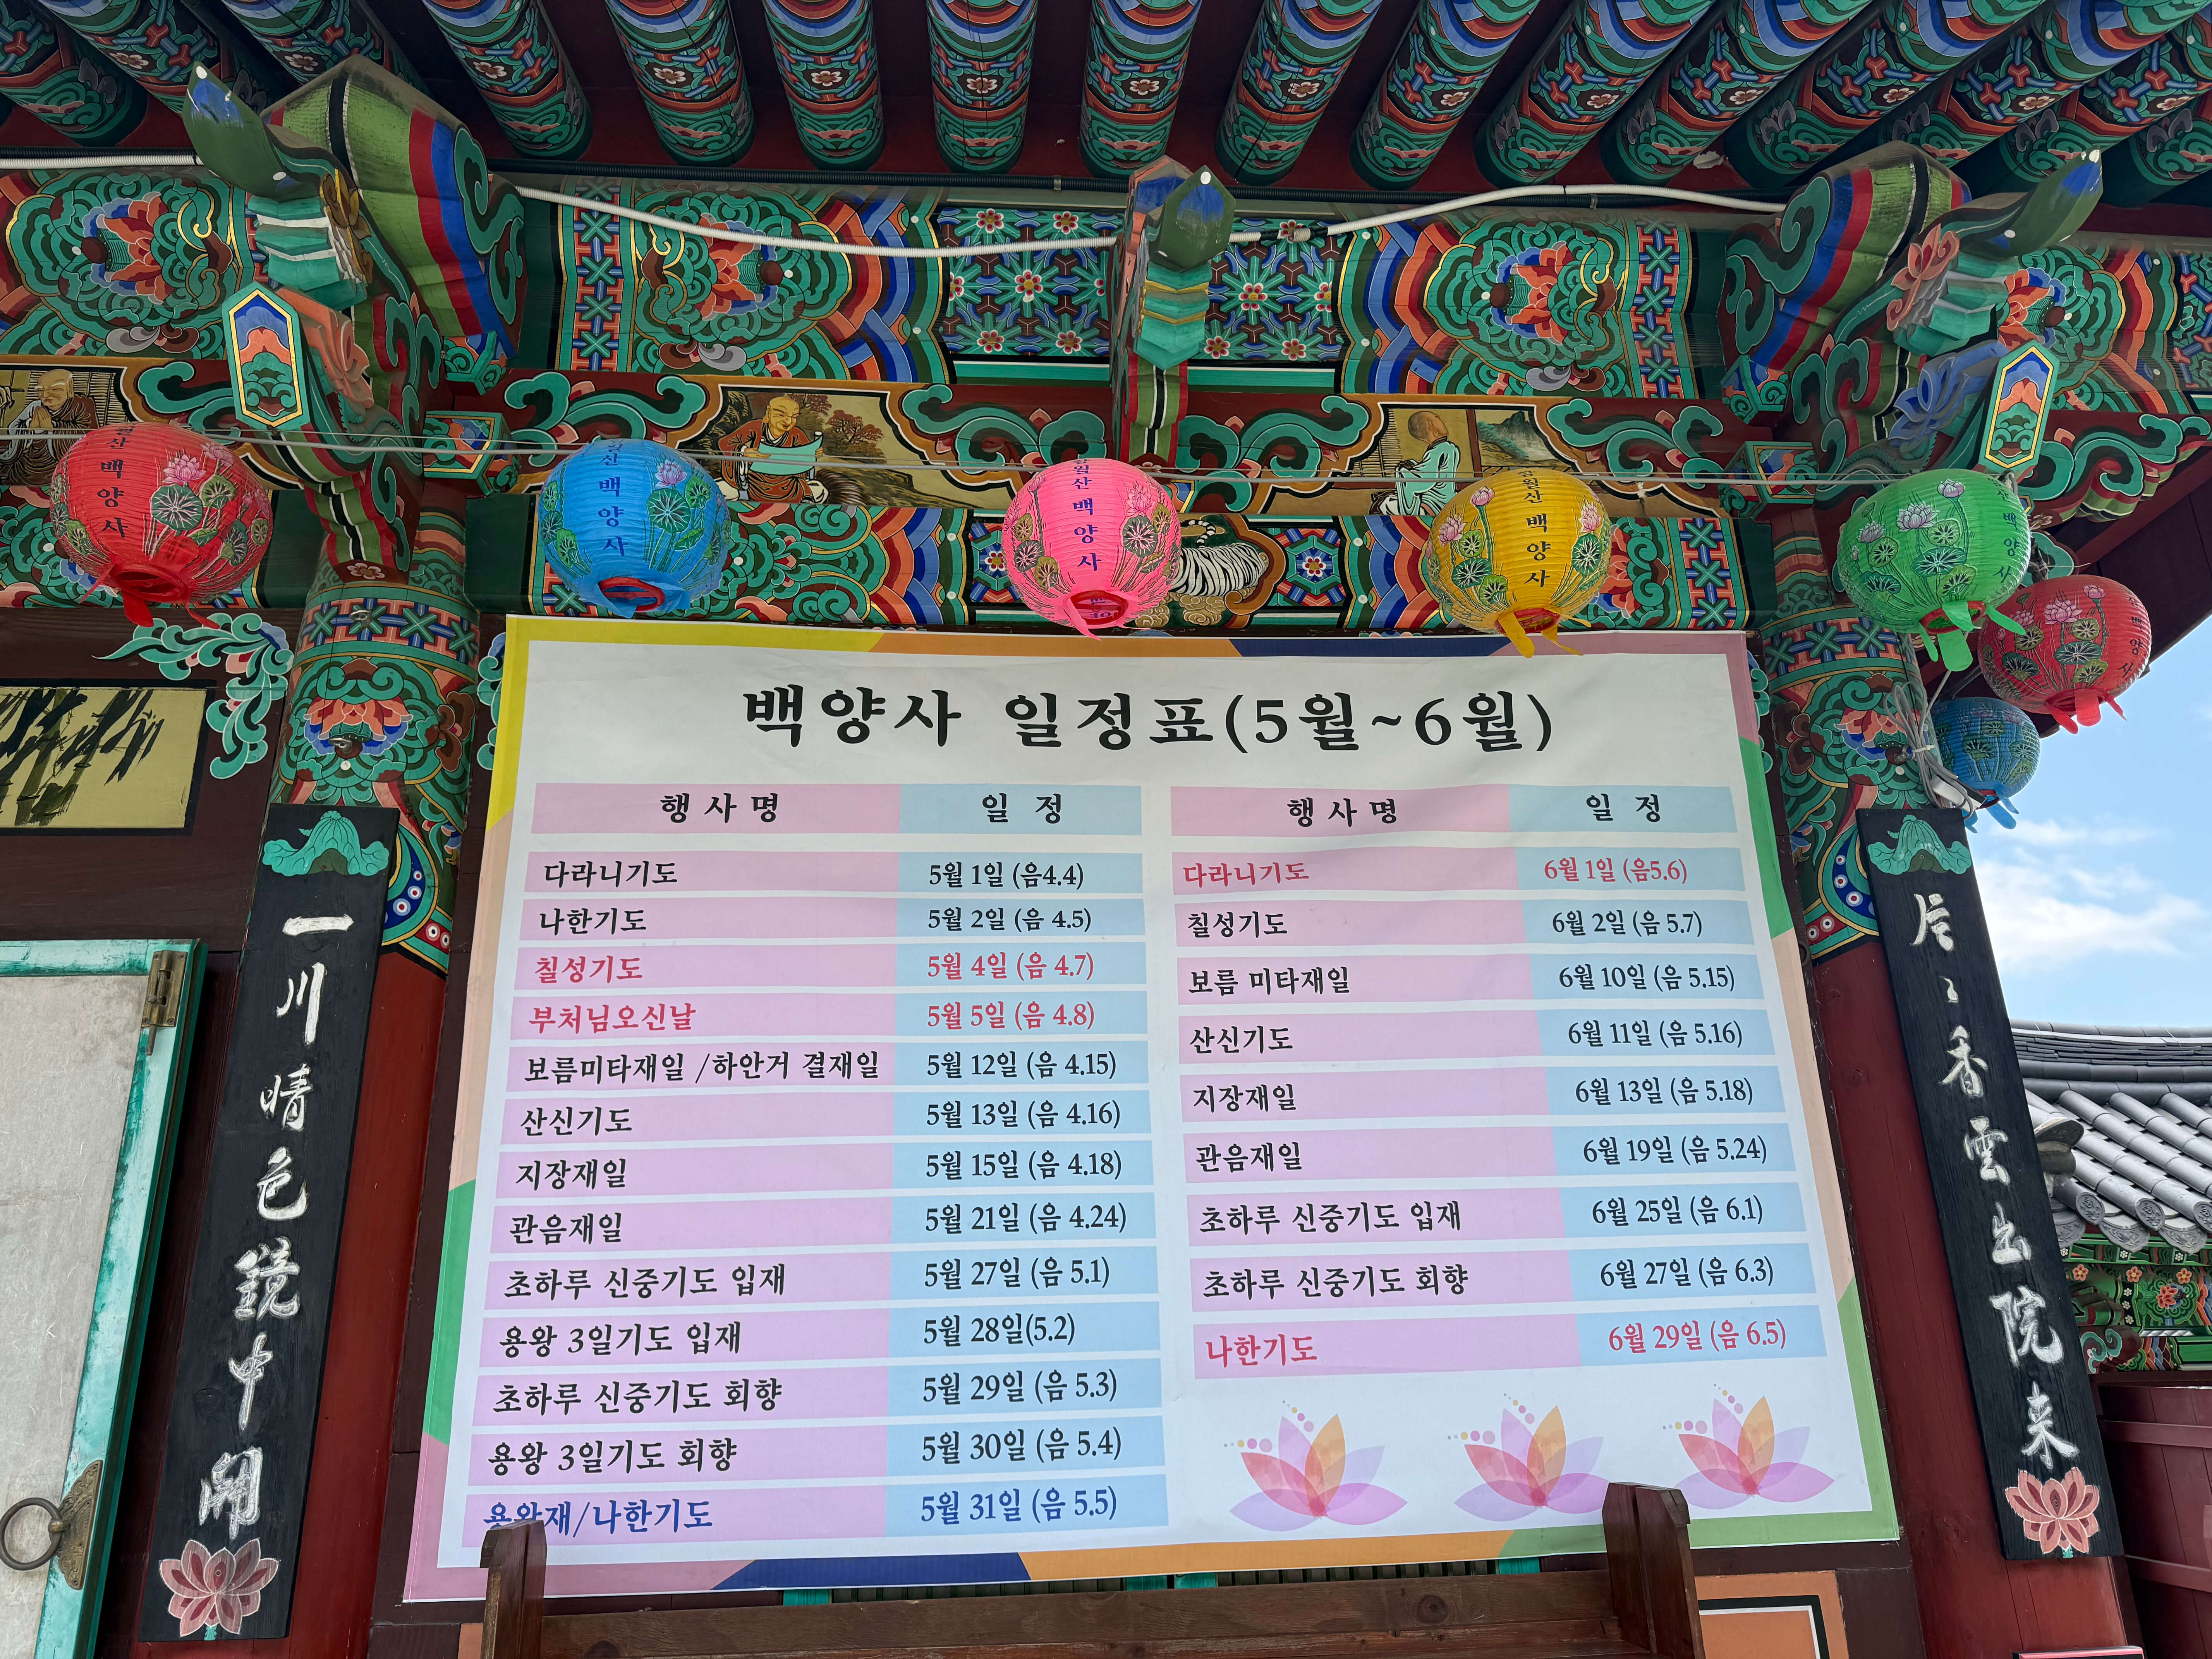 백양사
산 백양사
금월산 백양사
금월산 백양사
백양사
백양사
백양사 일정표(5월~6월)
행 사 명 일 정
다라니기도 5월 1일 (음4.4)
나한기도 5월 2일 (음 4.5)
칠성기도 5월 4일 (음 4.7)
부처님오신날 5월 5일 (음 4.8)
보름미타재일 /하안거 결재일 5월 12일 (음 4.15)
산신기도 5월 13일 (음 4.16)
지장재일 5월 15일 (음 4.18)
관음재일 5월 21일 (음 4.24)
초하루 신중기도 입재 5월 27일 (음 5.1)
용왕 3일기도 입재 5월 28일(5.2)
초하루 신중기도 회향 5월 29일 (음 5.3)
용왕 3일기도 회향 5월 30일 (음 5.4)
용왕재/나한기도 5월 31일 (음 5.5)
행 사 명 일 정
다라니기도 6월 1일 (음5.6)
칠성기도 6월 2일 (음 5.7)
보름 미타재일 6월 10일 (음 5.15)
산신기도 6월 11일 (음 5.16)
지장재일 6월 13일 (음 5.18)
관음재일 6월 19일 (음 5.24)
초하루 신중기도 입재 6월 25일 (음 6.1)
초하루 신중기도 회향 6월 27일 (음 6.3)
나한기도 6월 29일 (음 6.5)
一川晴色鏡中開
片〻香雲出院来